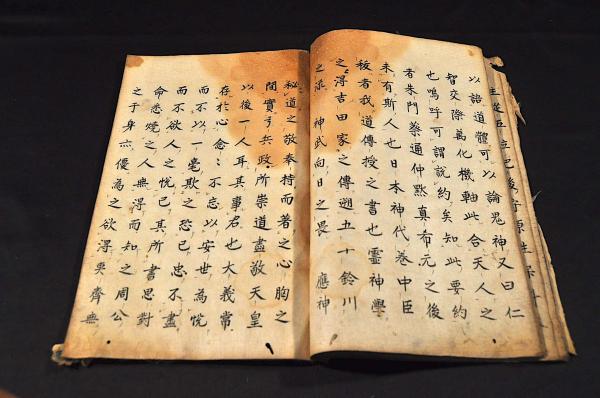 以語道體可以論鬼神又曰仁
智交際萬化機軸此合天人之
也嗚呼可謂說約矣知此要約
者朱門蔡通仲默真希元之後
未有斯人也日本神代卷中臣
秡者我道傳授之書也靈神學
之淂吉田家之傳遡五十鈴川
之深神武向日之畏應神
秘道之敬奉持而著之心胸之
間實亨兵政所崇道盡敬天皇
以後一人耳其事君也大義常
存於心念〻不忘以安世為悦
而不以一毫欺之恐已忠不盡
而不欲人之悦已其所書思對
命悉燒之人無淂而知之周公
之于身亦優為之欲淂吳齊無